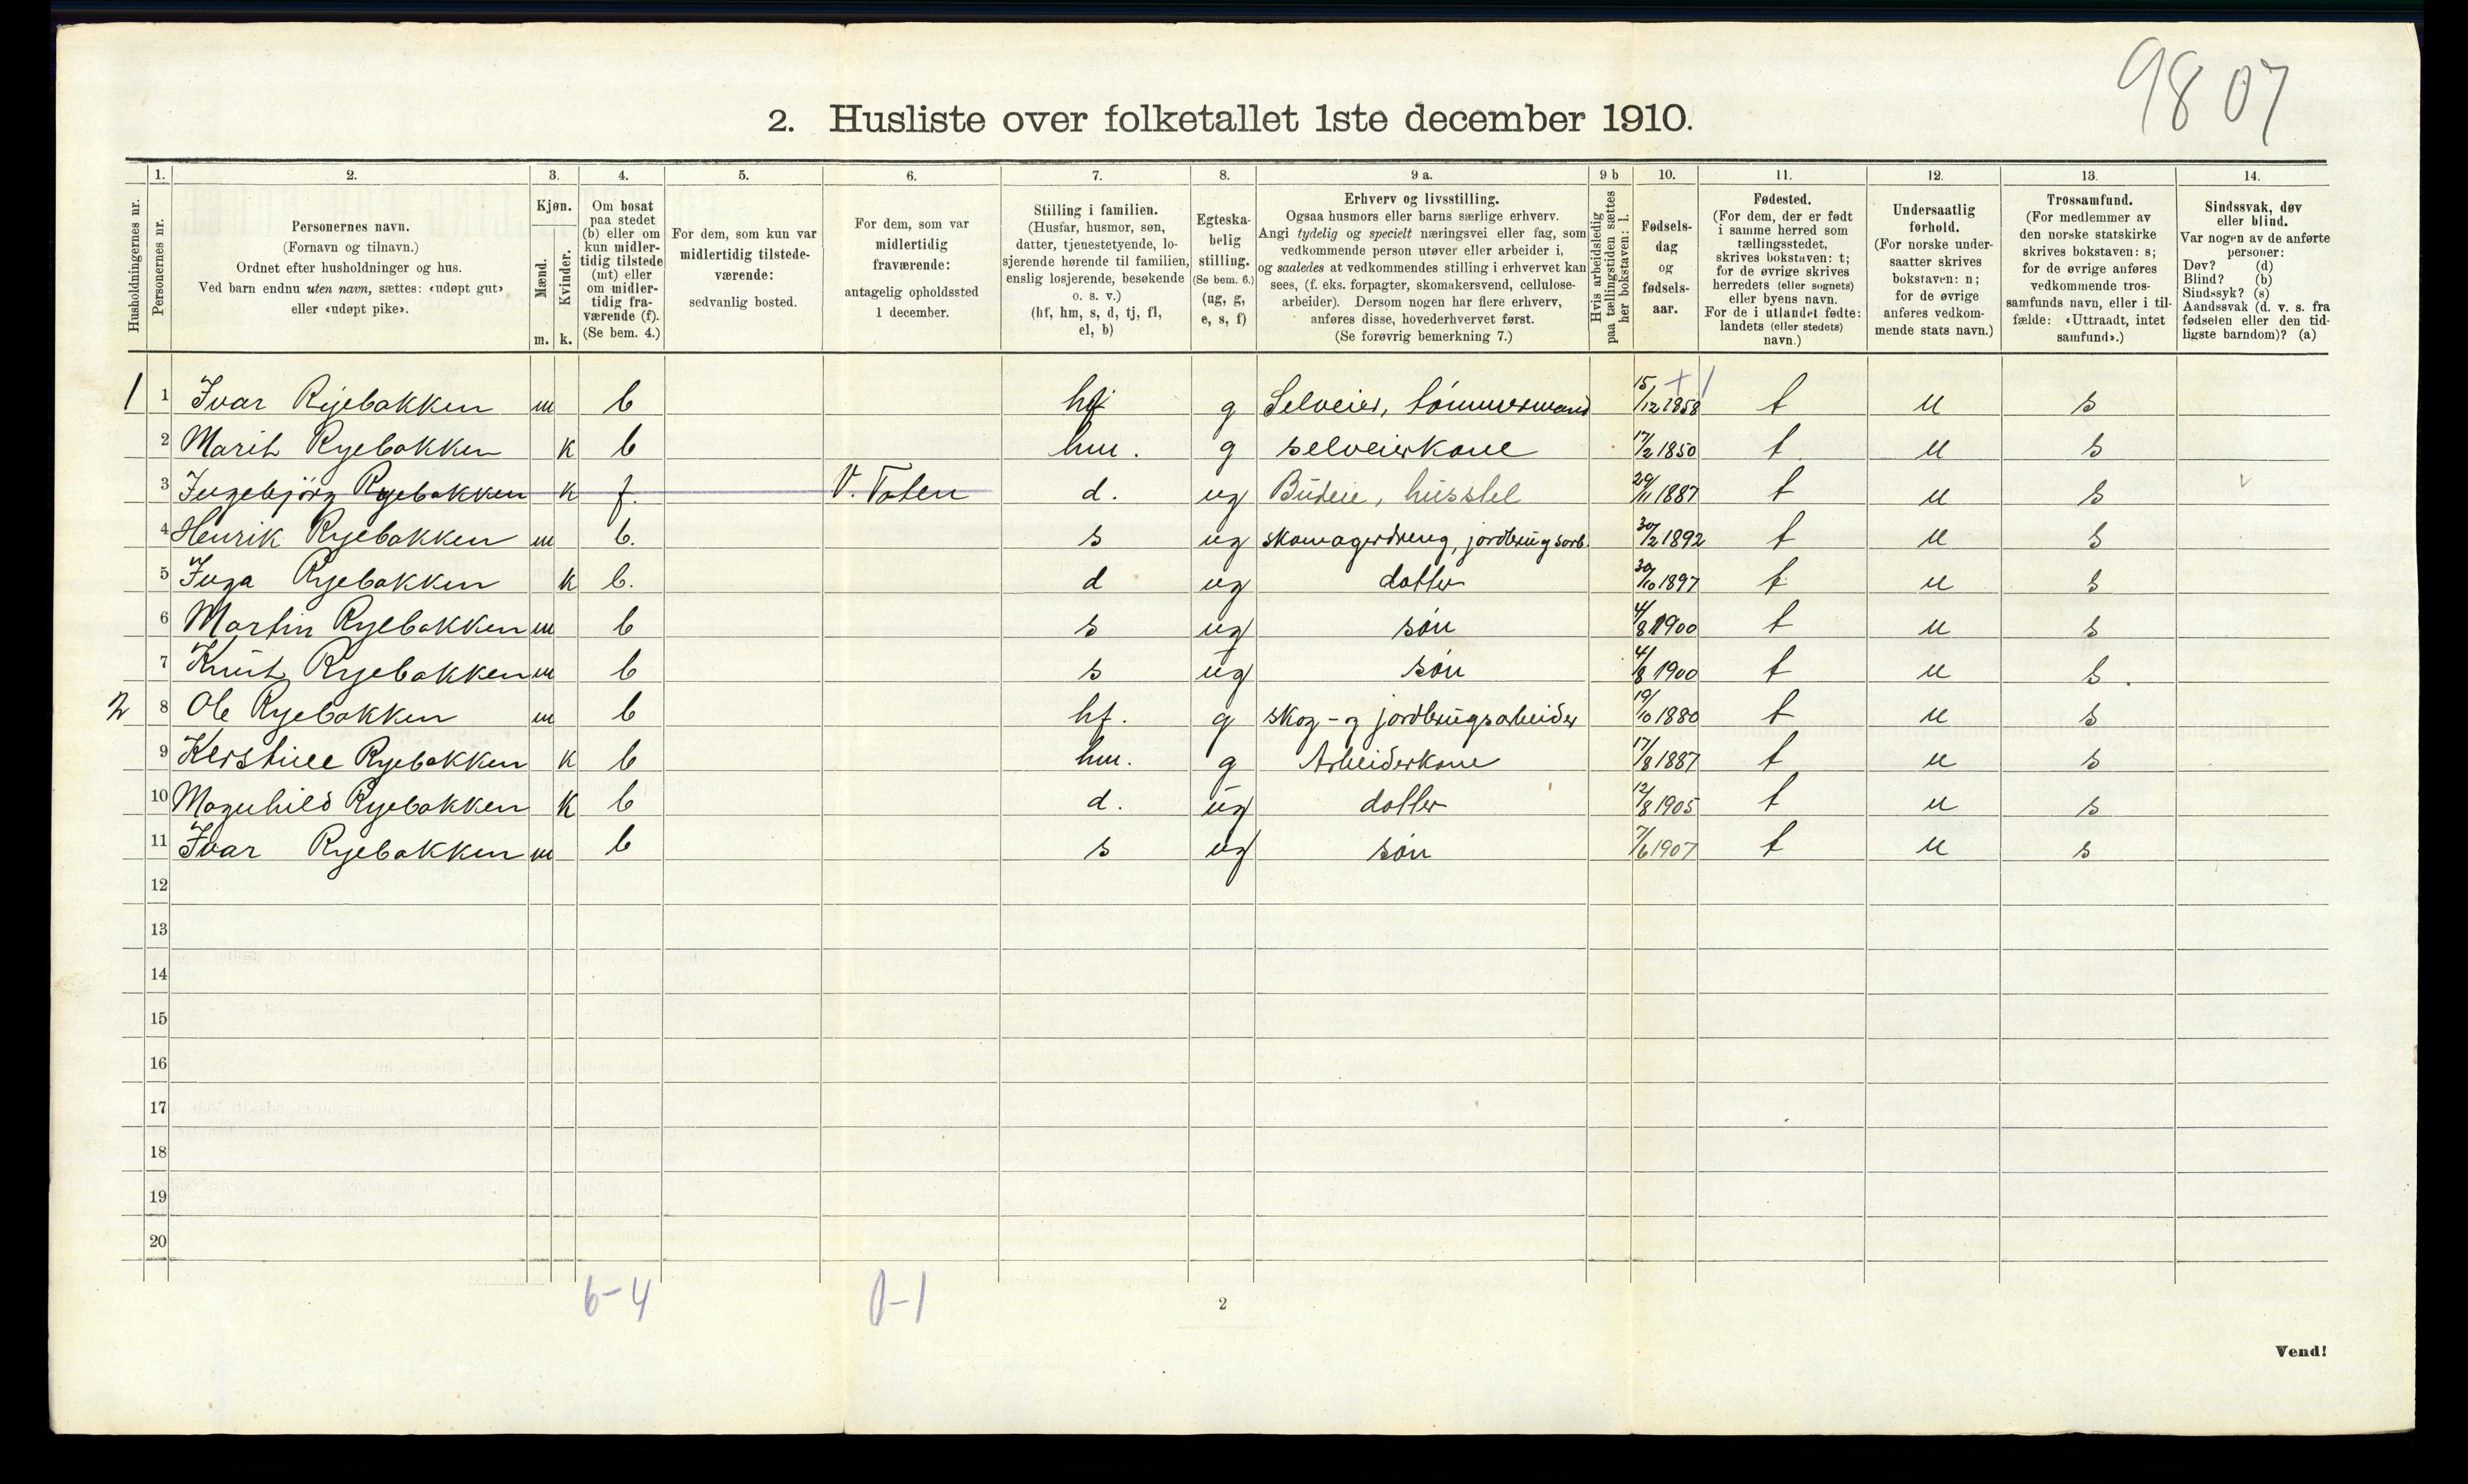 9807
2. Husliste over folketallet 1ste december 1910.
Husholdningernes nr.
1. Personernes nr.
2. Personernes navn.
(Fornavn og tilnavn.)
Ordnet efter husholdninger og hus.
Ved barn endnu uten navn, sættes: «udøpt gut»
eller «udøpt pike».
3. Kjøn.
Mænd. m.
Kvinder. k.
4. Om bosat
paa stedet
(b) eller om
kun midler-
tidig tilstede
(mt) eller
om midler-
tidig fra-
værende (f).
(Se bem. 4.)
5. For dem, som kun var
midlertidig tilstede-
værende:
sedvanlig bosted.
6. For dem, som var
midlertidig
fraværende:
antagelig opholdssted
1 december.
7. Stilling i familien.
(Husfar, husmor, søn,
datter, tjenestetyende, lo-
sjerende hørende til familien,
enslig losjerende, besøkende
o. s. v.)
(hf, hm, s, d, tj, fl,
el, b)
8. Egteska-
belig
stilling.
(Se bem. 6.)
(ug, g,
e, s, f)
9 a. Erhverv og livsstilling.
Ogsaa husmors eller barns særlige erhverv.
Angi tydelig og specielt næringsvei eller fag, som
vedkommende person utøver eller arbeider i,
og saaledes at vedkommendes stilling i erhvervet kan
sees, (f. eks. forpagter, skomakersvend, cellulose-
arbeider). Dersom nogen har flere erhverv,
anføres disse, hovederhvervet først.
(Se forøvrig bemerkning 7.)
9 b Hvis arbeidsledig
paa tællingstiden sættes
her bokstaven: l.
10. Fødsels-
dag
og
fødsels-
aar.
11. Fødested.
(For dem, der er født
i samme herred som
tællingsstedet,
skrives bokstaven: t;
for de øvrige skrives
herredets (eller sognets)
eller byens navn.
For de i utlandet fødte:
landets (eller stedets)
navn.)
12. Undersaatlig
forhold.
(For norske under-
saatter skrives
bokstaven: n;
for de øvrige
anføres vedkom-
mende stats navn.)
13. Trossamfund.
(For medlemmer av
den norske statskirke
skrives bokstaven: s;
for de øvrige anføres
vedkommende tros-
samfunds navn, eller i til-
fælde: «Uttraadt, intet
samfund».)
14. Sindssvak, døv
eller blind.
Var nogen av de anførte
personer:
Døv? (d)
Blind? (b)
Sindssyk? (s)
Aandssvak (d. v. s. fra
fødselen eller den tid-
ligste barndom)? (a)
1 1 Ivar Ryebakken m b hf g Selveier, tømmermand 15/12 1858 t n s
2 Marit Ryebakken k b hm. g selveierkone 17/2 1850 t n s
3 Ingebjörg Ryebakken k f. V. Toten d. ug Budeie, husstel 29/11 1887 t n s
4 Henrik Ryebakken m b. s ug skomagerdreng, jordbrugsarb. 30/2 1892 t n s
5 Inga Ryebakken k b. d ug datter 30/10 1897 t n s
6 Martin Ryebakken m b s ug søn 4/8 1900 t n s
7 Knut Ryebakken m b s ug søn 4/8 1900 t n s
2 8 Ole Ryebakken m b hf. g skog- og jordbrugsarbeider 19/10 1880 t n s
9 Kerstine Ryebakken k b hm. g Arbeiderkone 17/8 1887 t n s
10 Magnhild Ryebakken k b d. ug datter 12/8 1905 t n s
11 Ivar Ryebakken m b s ug søn 7/6 1907 t n s
12
13
14
15
16
17
18
19
20
6-4 0-1
2
Vend!